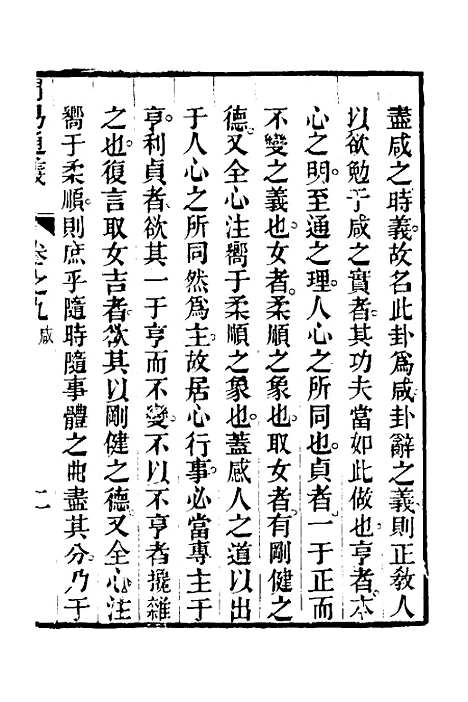 盡咸之時義故名此卦爲咸卦辭之義則正敎人
以欲勉于咸之實者其功夫當如此做也亨者本
心之明至通之理人心之所同也貞者一于正而
不變之義也女者柔順之象也取女者有剛健之
德又全心注嚮于柔順之象也蓋感人之道以出
于人心之所同然爲主故居心行事必當專主于
亨利貞者欲其一于亨而不變不以不亨者攙雜
之也復言取女吉者欲其以剛健之德又全心注
嚮于柔順則庶乎隨時隨事體之曲盡其分乃于
卷之九 咸 二